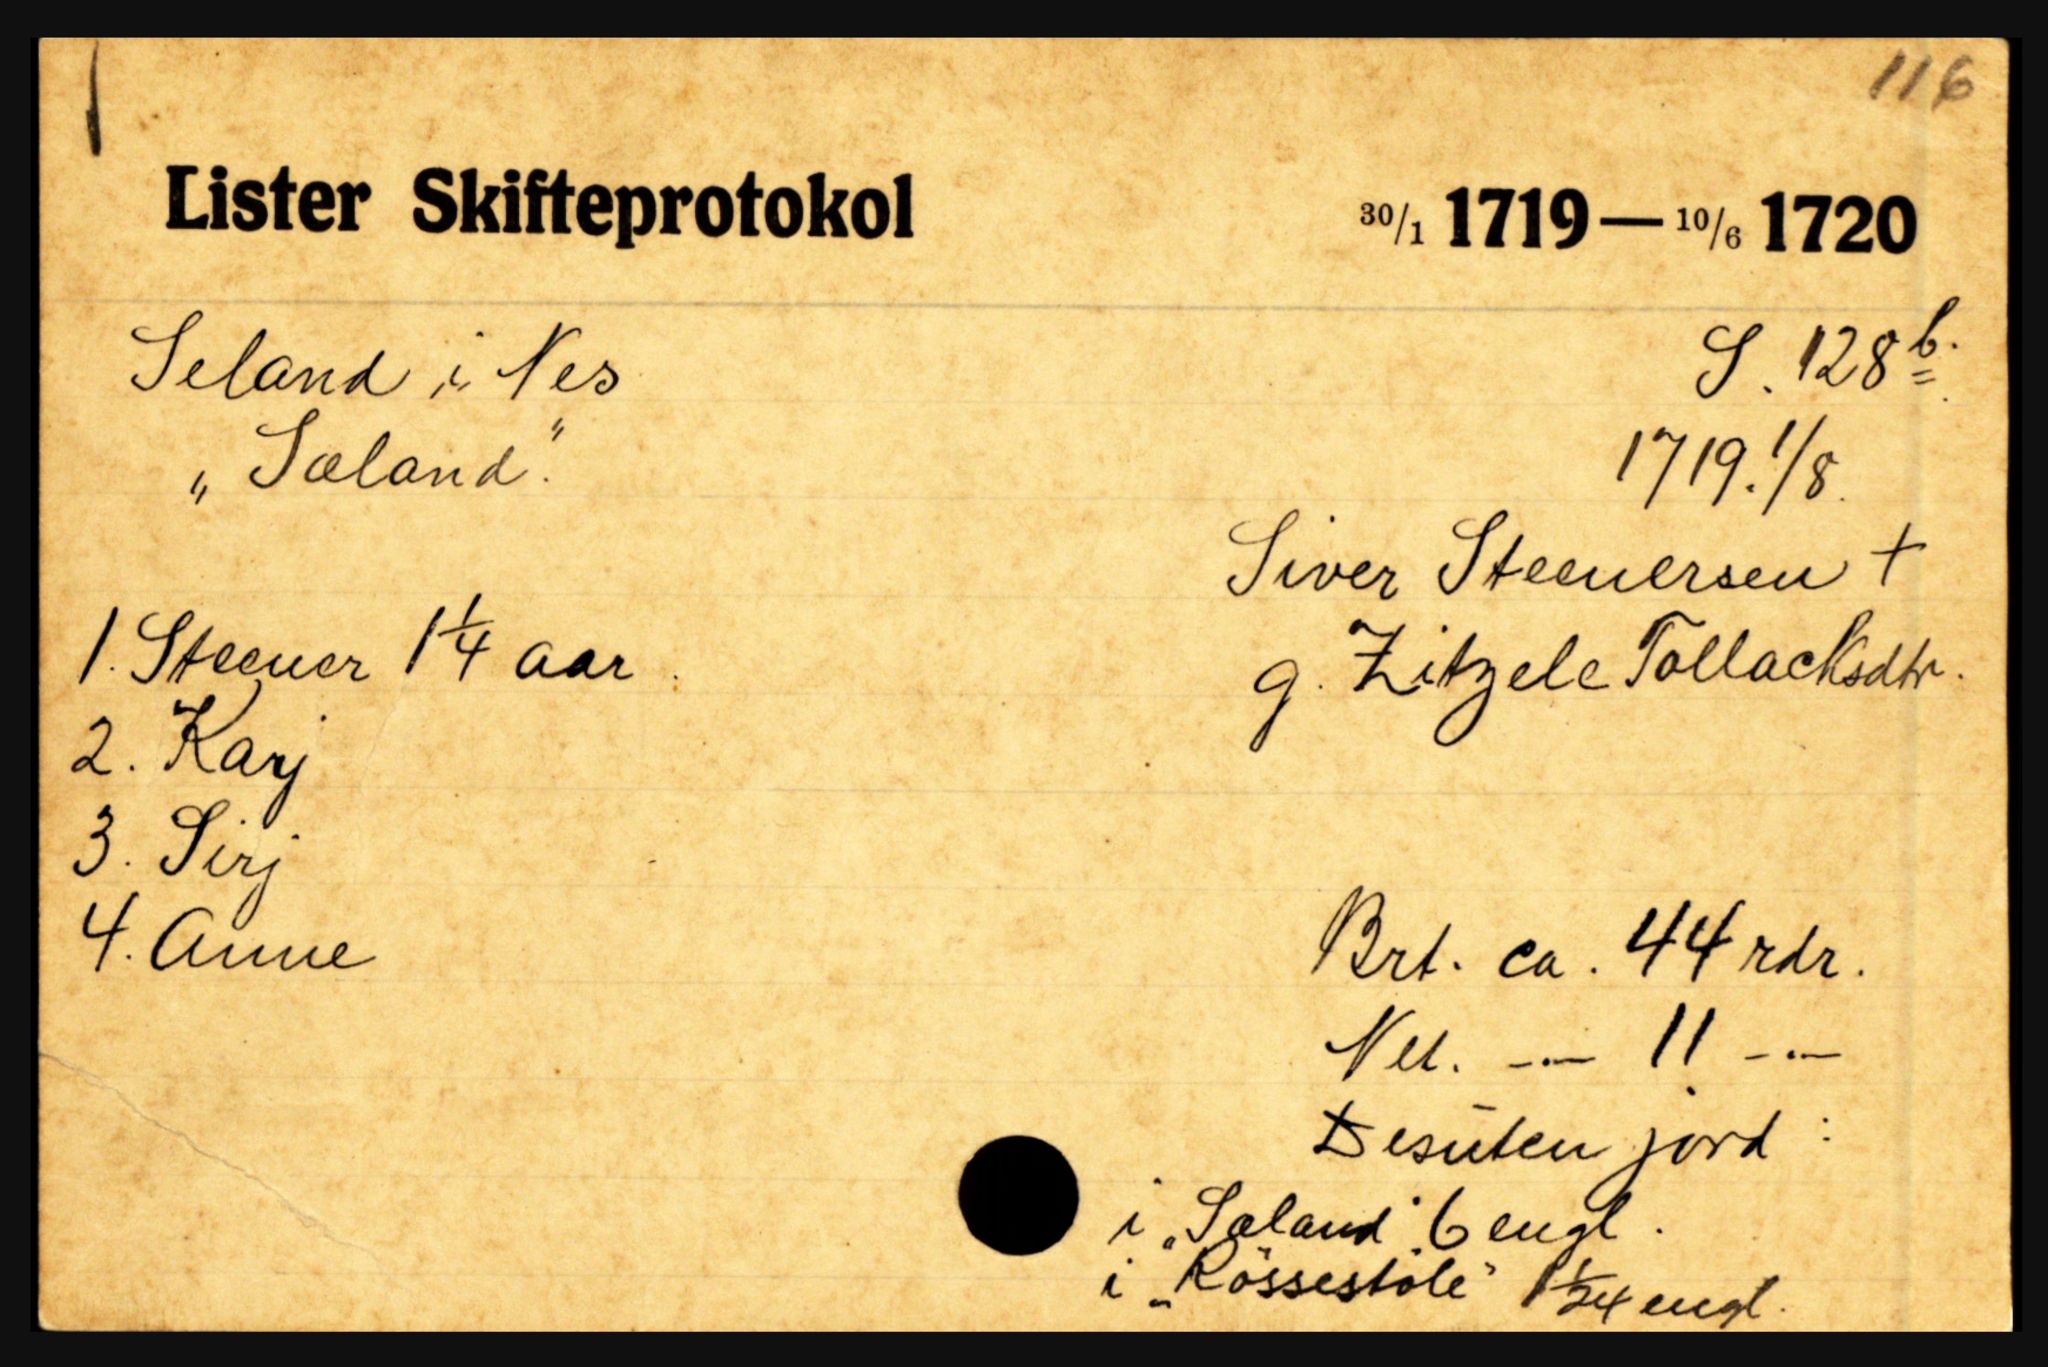 116
Lister Skifteprotokol 30/1 1719 — 10/6 1720
Seland i Nes S. 128 b.
„Sæland". 1719. 1/8.
Siver Steenersen +
1. Steener 1 1/4 aar. g. Zitzele Tollacksdtr.
2. Karj
3. Sirj
4. Anne Brt. ca. 44 rdr.
Net. -·- 11 -·-
Desuten jord :
i „Sæland" 6 engl.
i „Rössestöle" 1 1/24 engl.